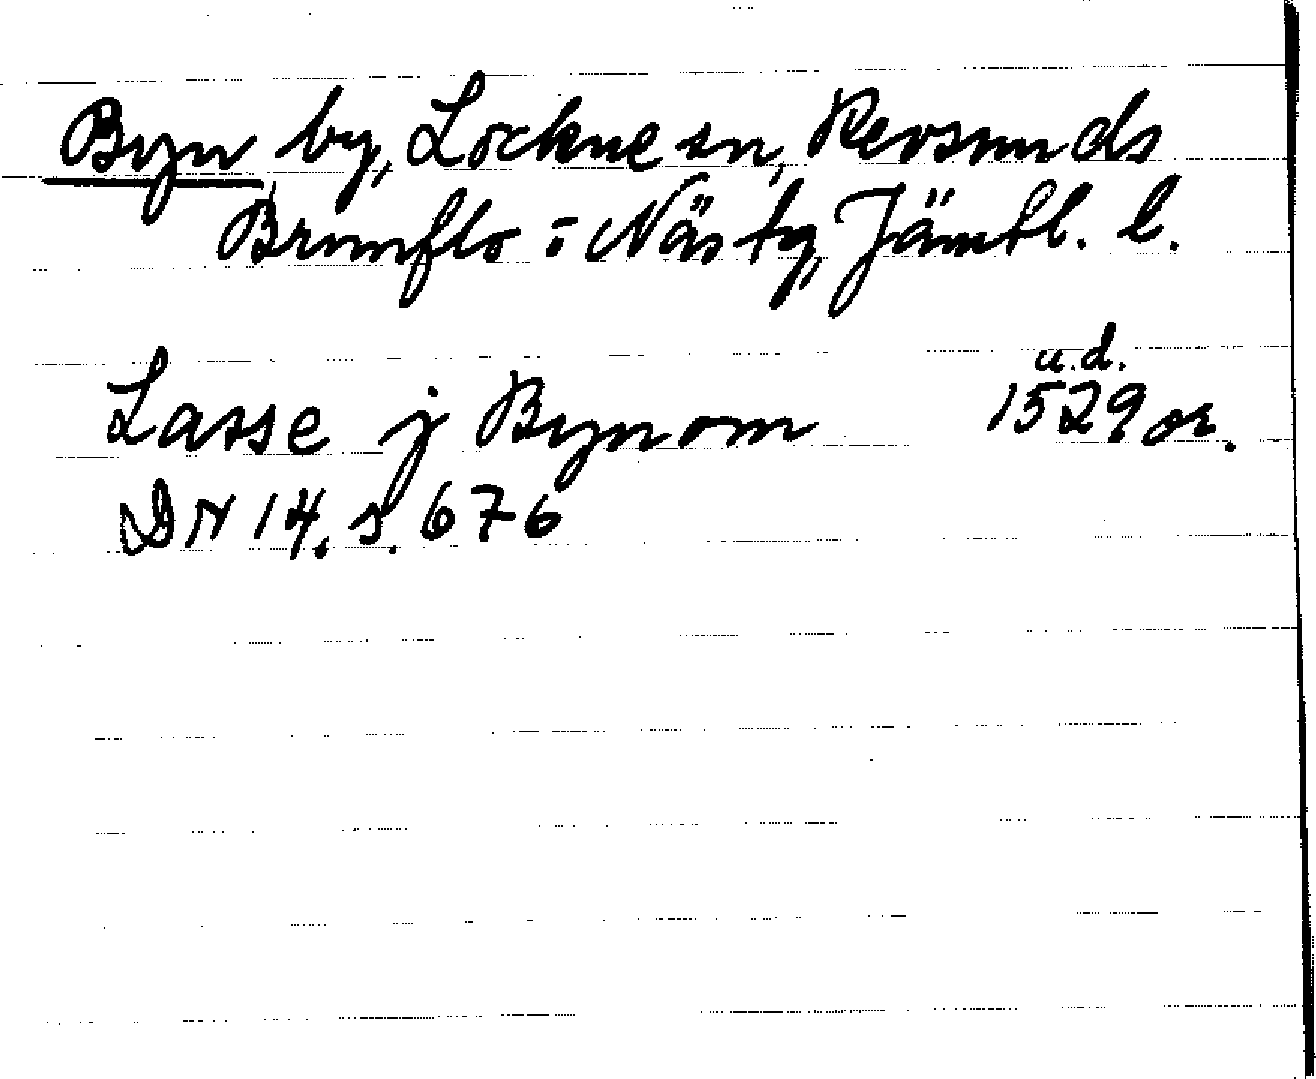 Byn by, Lockne sn, Revsunds
Brunflo o Näs tg, Jämtl. l.
u.d.
Lasse j Bynom 1529 or.
DN 14, s. 676